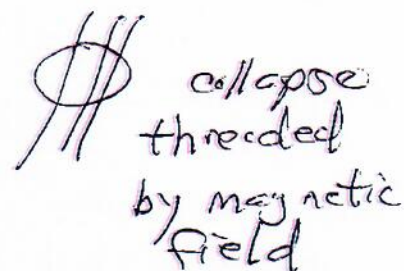 collapse
threaded
by magnetic
field